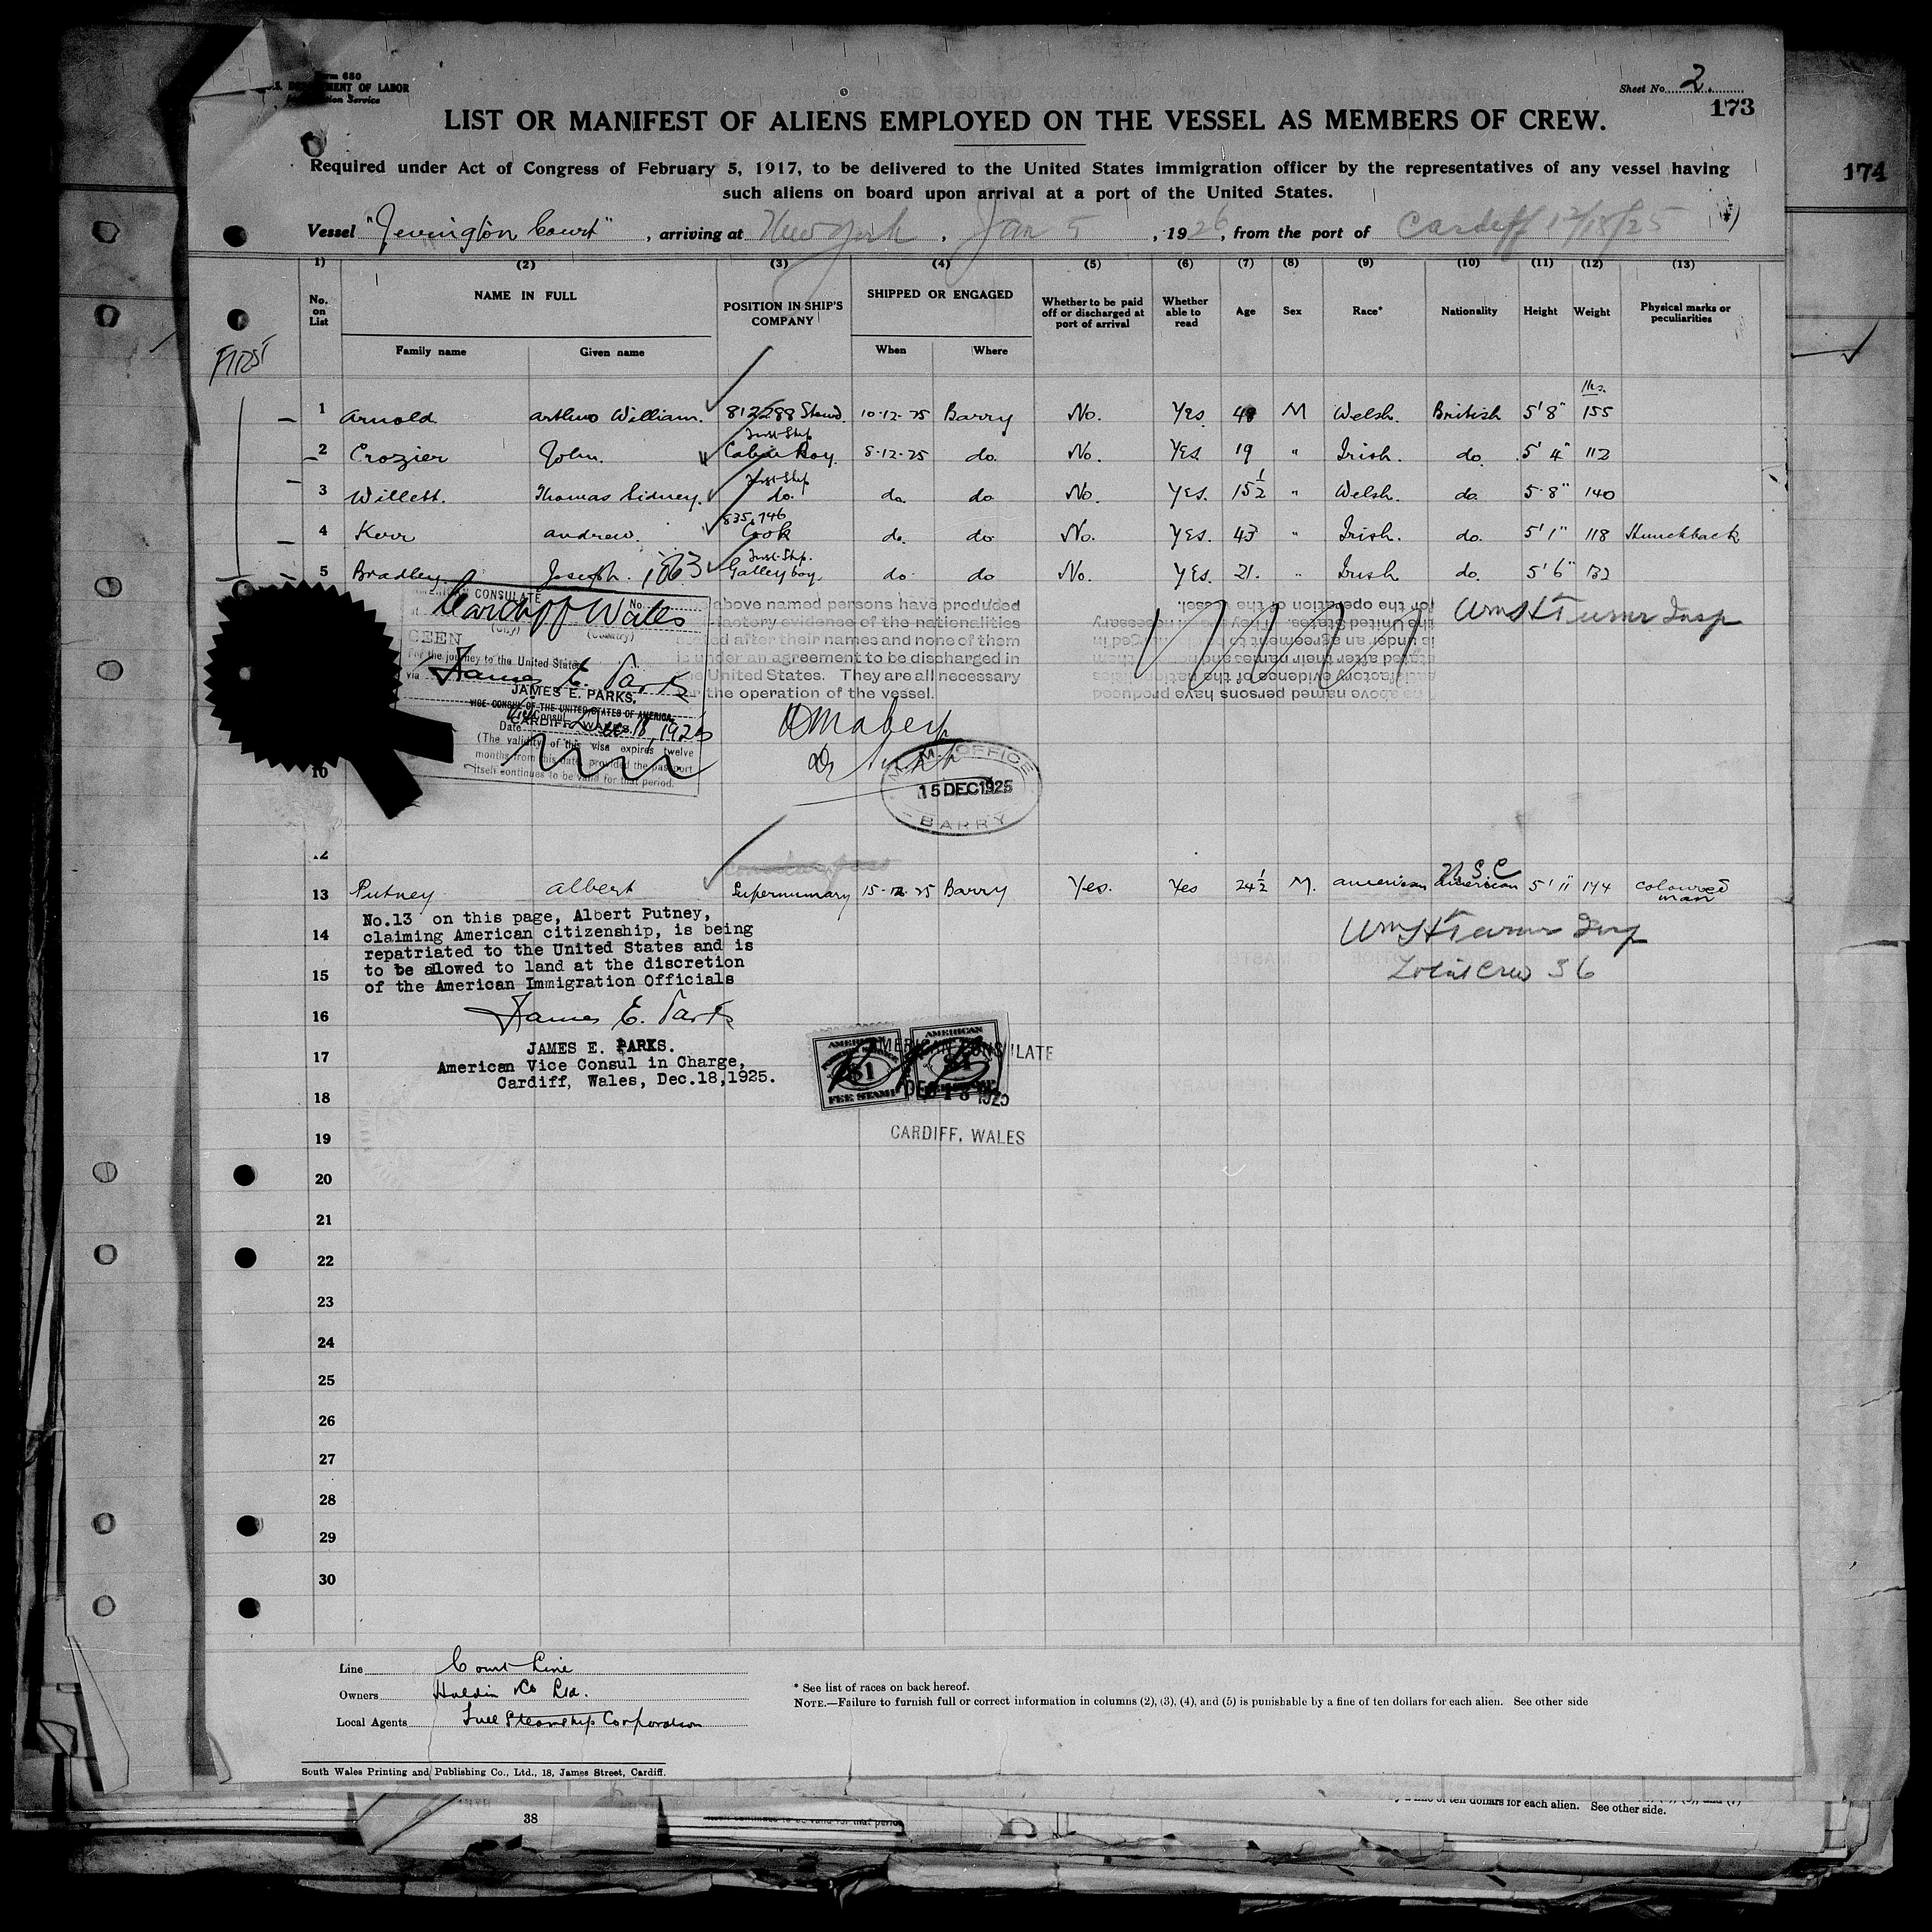 Form 680
U.S. DEPARTMENT OF LABOR
Immigration Service
Sheet No. 2.
173
174
LIST OR MANIFEST OF ALIENS EMPLOYED ON THE VESSEL AS MEMBERS OF CREW.
Required under Act of Congress of February 5, 1917, to be delivered to the United States immigration officer by the representatives of any vessel having
such aliens on board upon arrival at a port of the United States.
Vessel "Jevington Court", arriving at New York, Jan 5, 1926, from the port of Cardiff 12/18/25
(1) (2) (3) (4) (5) (6) (7) (8) (9) (10) (11) (12) (13)
No. on List NAME IN FULL POSITION IN SHIP'S COMPANY SHIPPED OR ENGAGED Whether to be paid off or discharged at port of arrival Whether able to read Age Sex Race* Nationality Height Weight Physical marks or peculiarities
Family name Given name When Where
FIRST
lbs.
1 Arnold Arthur William. 812288 Stewd. 10-12-25 Barry No. Yes. 48 M Welsh. British 5'8" 155
2 Crozier John. First Ship Cabin Boy. 8-12-25 do. No. Yes. 19 " Irish. do. 5'4" 112
3 Willett. Thomas Sidney. First Ship do. do. do No. Yes. 15½ " Welsh. do. 5'8" 140
4 Kerr Andrew. 835,746 Cook do. do No. Yes. 43 " Irish. do. 5'1" 118 Hunchback
5 Bradley. Joseph. First Ship. Galley boy. do. do No. Yes. 21. " Irish do. 5'6" 132
1863
AMERICAN CONSULATE
No.
Cardiff Wales
(City) (Country)
SEEN
For the journey to the United States
via
James E. Parks
JAMES E. PARKS,
VICE CONSUL OF THE UNITED STATES OF AMERICA
Vice Consul
CARDIFF, WALES.
Date Dec. 18, 1925
(The validity of this visa expires twelve
months from this date, provided the passport
itself continues to be valid for that period.
above named persons have produced
satisfactory evidence of the nationalities
stated after their names and none of them
is under an agreement to be discharged in
the United States. They are all necessary
for the operation of the vessel.
The above named persons have produced
satisfactory evidence of the nationalities
stated after their names and none of them
is under an agreement to be discharged in
the United States. They are all necessary
for the operation of the vessel.
Wm H Turner Insp
M.M. OFFICE
15 DEC 1925
BARRY
10
12
13 Putney Albert Supernumary 15-12-25 Barry Yes. Yes 24½ M. American U.S.C. American 5'11" 174 coloured man
No.13 on this page, Albert Putney,
claiming American citizenship, is being
repatriated to the United States and is
to be allowed to land at the discretion
of the American Immigration Officials
James E. Parks
JAMES E. PARKS.
American Vice Consul in Charge,
Cardiff, Wales, Dec.18,1925.
Wm H Turner Insp
Total Crew 36
AMERICAN
$1
FEE STAMP
AMERICAN
$1
AMERICAN CONSULATE
DEC 18 1925
CARDIFF, WALES
14
15
16
17
18
19
20
21
22
23
24
25
26
27
28
29
30
Line Court Line
Owners Haldin & Co Ltd.
Local Agents Steamship Corporation
* See list of races on back hereof.
NOTE.—Failure to furnish full or correct information in columns (2), (3), (4), and (5) is punishable by a fine of ten dollars for each alien. See other side
South Wales Printing and Publishing Co., Ltd., 18, James Street, Cardiff.
38
of ten dollars for each alien. See other side.